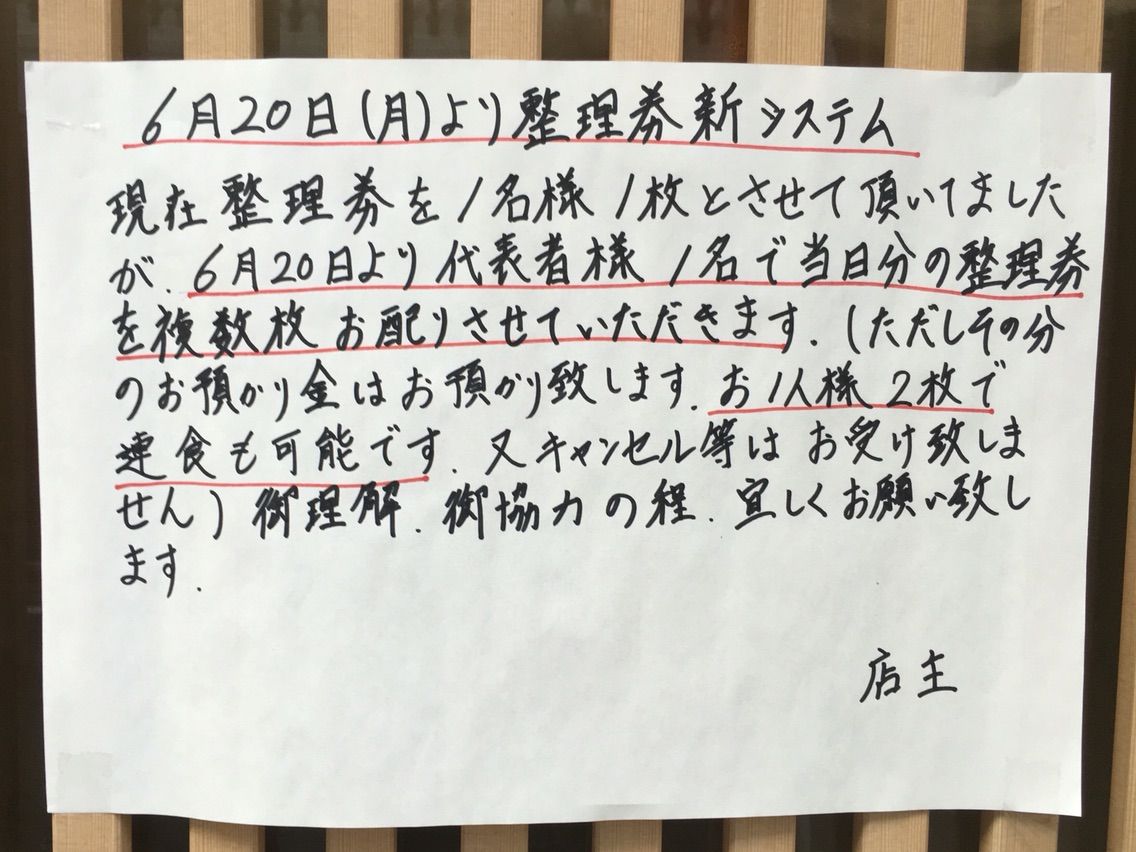 6月20日(月)より整理券新システム
現在整理券を1名様1枚とさせて頂いてました
が、6月20日より代表者様1名で当日分の整理券
を複数枚お配りさせていただきます。(ただしその分
のお預かり金はお預かり致します。お1人様2枚で
連食も可能です。又キャンセル等はお受け致しま
せん)御理解、御協力の程、宜しくお願い致し
ます。
店主